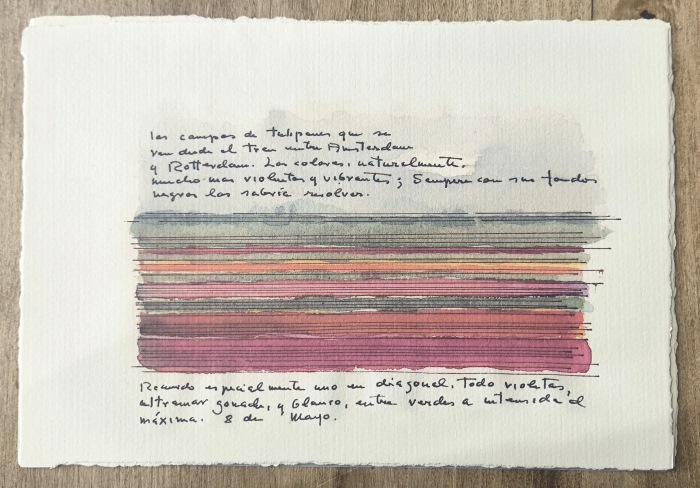 los campos de tulipanes que se
ven desde el tren entre Amsterdam
y Rotterdam. Los colores, naturalmente,
mucho mas violentos y vibrantes; Sempere con sus fondos
negros los sabría resolver.
Recuerdo especialmente uno en diagonal, todo violetas,
ultramar y Blanco, entre verdes a intensidad
máxima. 8 de Mayo.